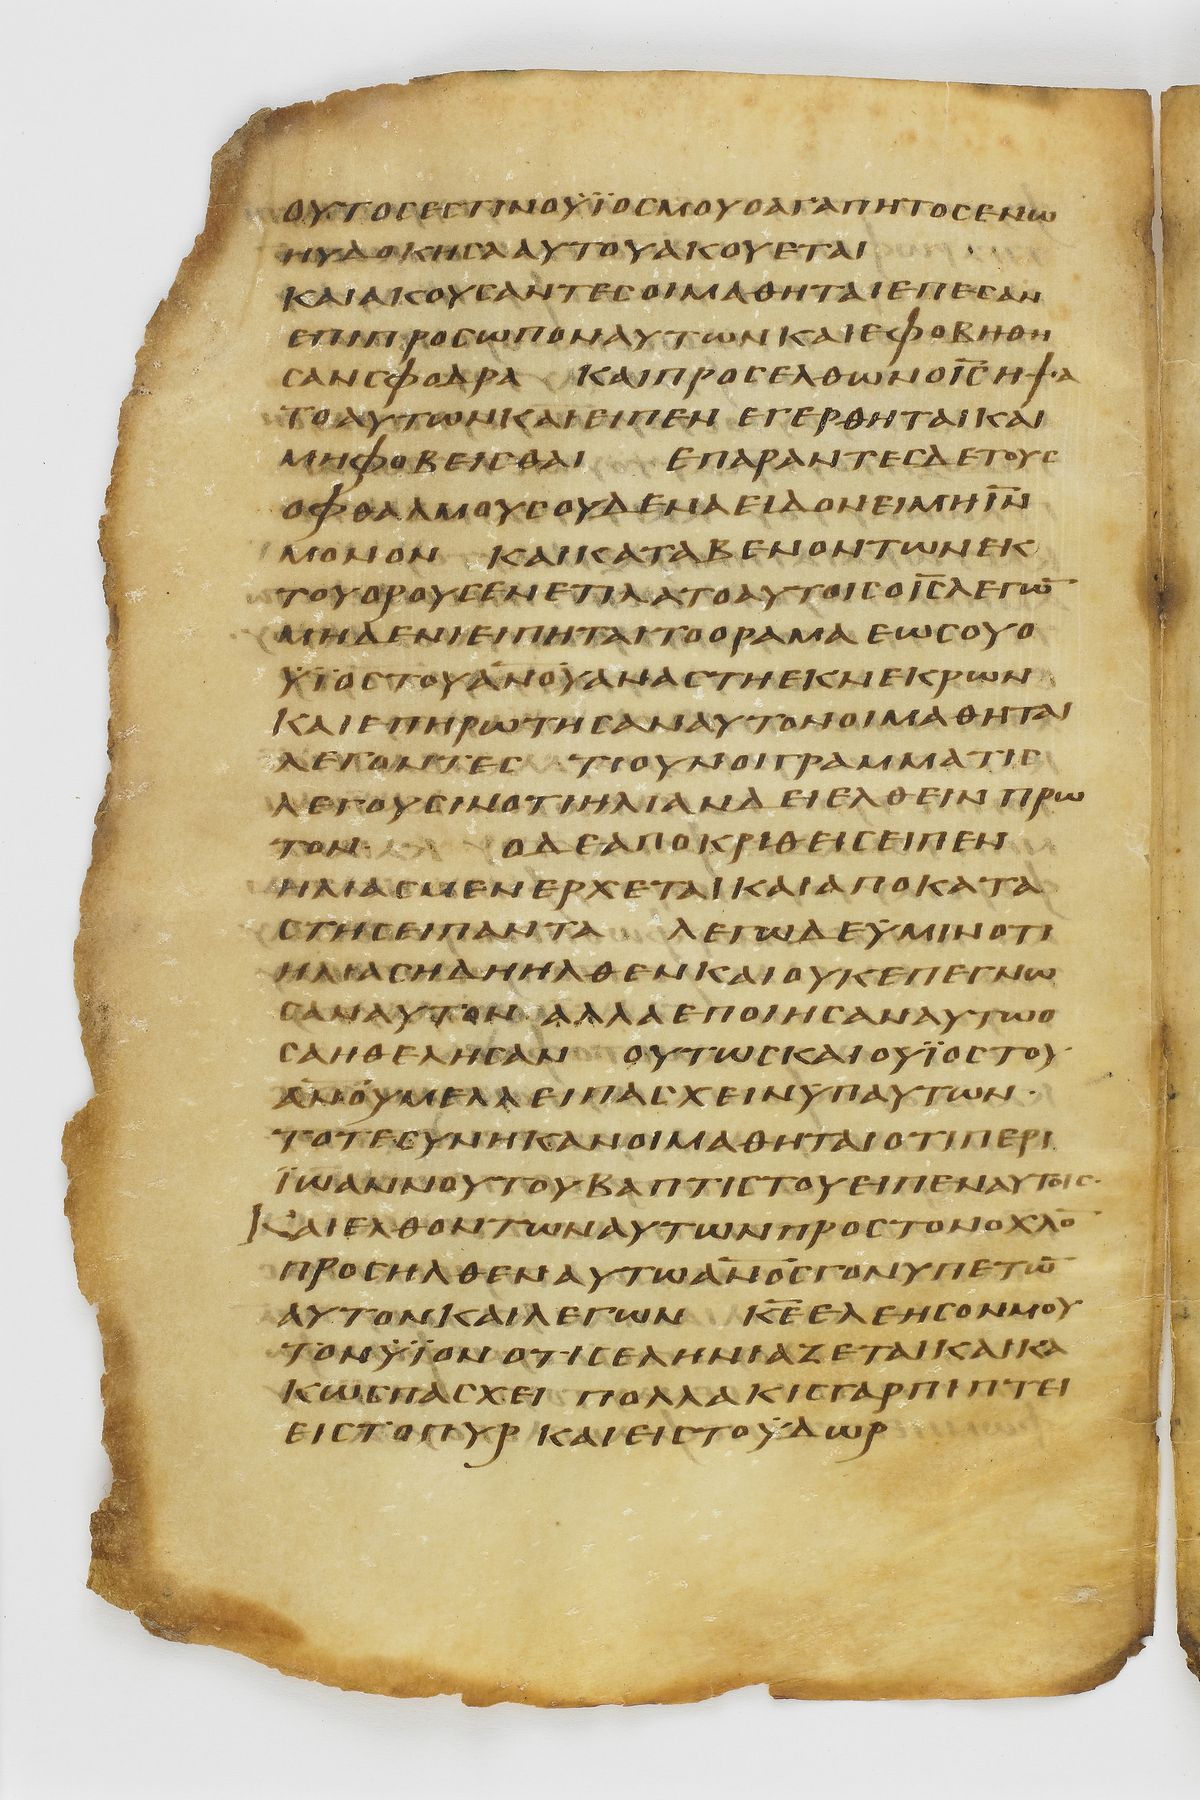 ουτοςεστινουϊοςμουοαγαπητοςενω
ηυδοκησααυτουακουεται
καιακουσαντεςοιμαθηταιεπεσαν
επιπροσωποναυτωνκαιεφοβηθη
σανσφοδρα καιπροσελθωνοι̅ς̅ηψα
τοαυτωνκαιειπεν εγερθητακαι
μηφοβεισθαι επαραντεςδετους
οφθαλμουςουδεναειδονειμηι̅ν̅
μονον καικαταβενοντωνεκ
τουορουςενετιλατοαυτοιςοι̅ς̅λεγω̅
μηδενιειπηταιτοοραμαεωςουο
ϋϊοςτουα̅ν̅ο̅υ̅αναστηεκνεκρων
καιεπηρωτησαναυτονοιμαθηται
λεγοντες τιουνοιγραμματις
λεγουσινοτιηλιανδειελθεινπρω
τον· οδεαποκριθειςειπεν
ηλιαςμενερχεταικαιαποκατα
στησειπαντα λεγωδεϋμινοτι
ηλιαςηδηηλθενκαιουκεπεγνω
σαναυτον αλλαεποιησαναυτωο
σαηθελησαν ουτωςκαιουϊοςτου
α̅ν̅ο̅υ̅μελλειπασχεινυπαυτων·
τοτεσυνηκανοιμαθηταιοτιπερι
ϊωαννουτουβαπτιστουειπεναυτοις·
καιελθοντωναυτωνπροςτονοχλο̅
προσηλθεναυτωα̅ν̅ο̅ς̅γονυπετω̅
αυτονκαιλεγων κ̅ε̅ελεησονμου
τονϋϊονοτισεληνιαζεταικαικα
κωςπασχει πολλακιςγαρπιπτει
ειςτοπυρκαιειςτοϋδωρ